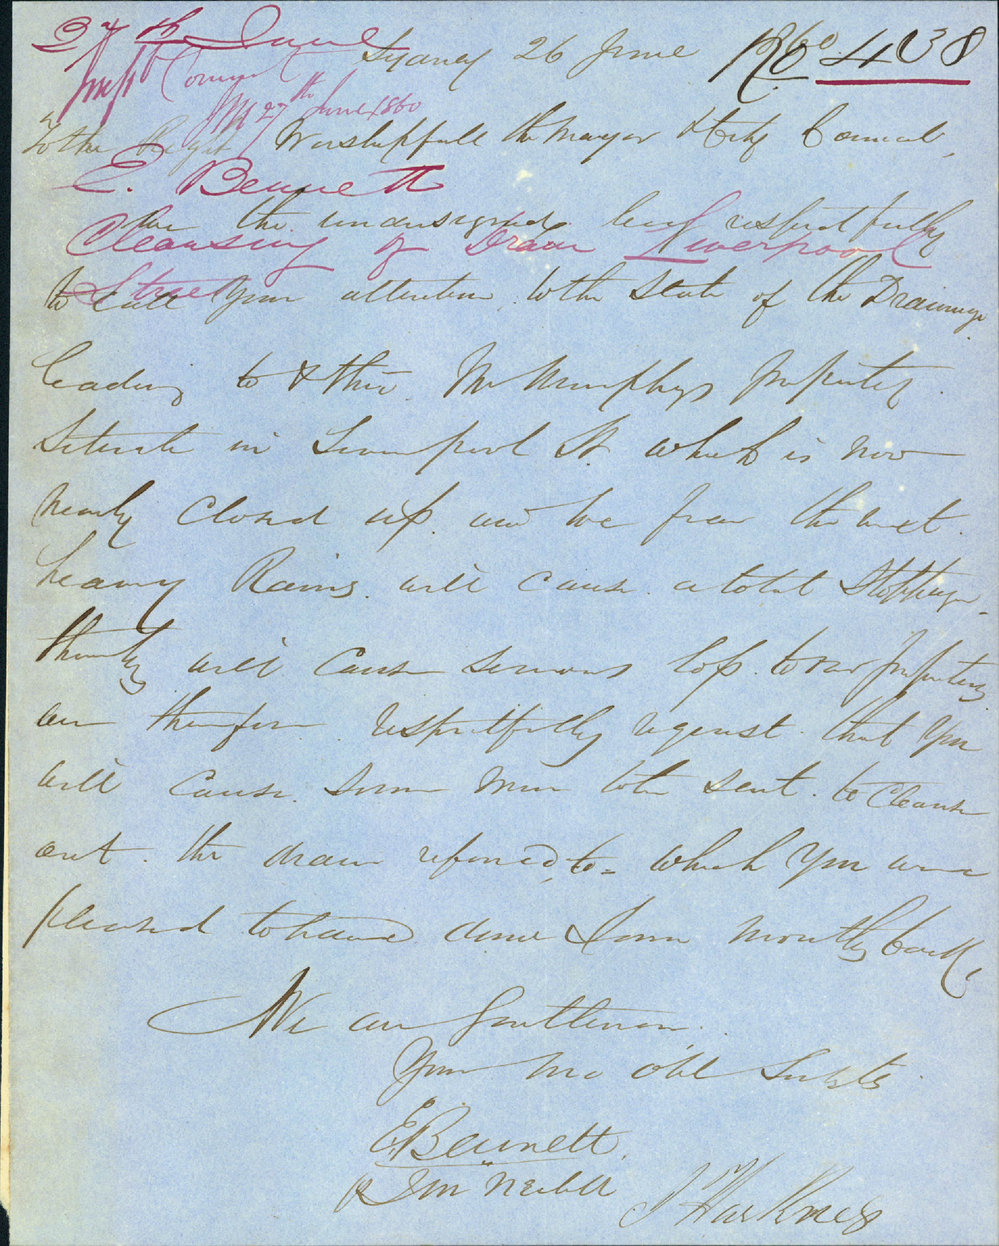 27th June
Sydney 26 June 1860
No 408
Inspt
27th June 1860
To the Right Worshipfull the Mayor & City Council,
E. Bennett
We the undersigned beg respectfully
Cleansing of Drain Liverpool
Street
to call your attention to the State of the Drainage
leading to & thro Mr Murphys property
Situate in Liverpool St which is now
nearly Closed up and we fear the next
heavy Rains will cause a total Stoppage
thereby will Cause serious loss to our properties
we therefore respectfully request that you
will cause some men to be sent to Cleanse
out the drain referred to = which you were
pleased to have done some months back,
We are Gentlemen
Your Mo Obt Servts
E Bennett
J Harkness